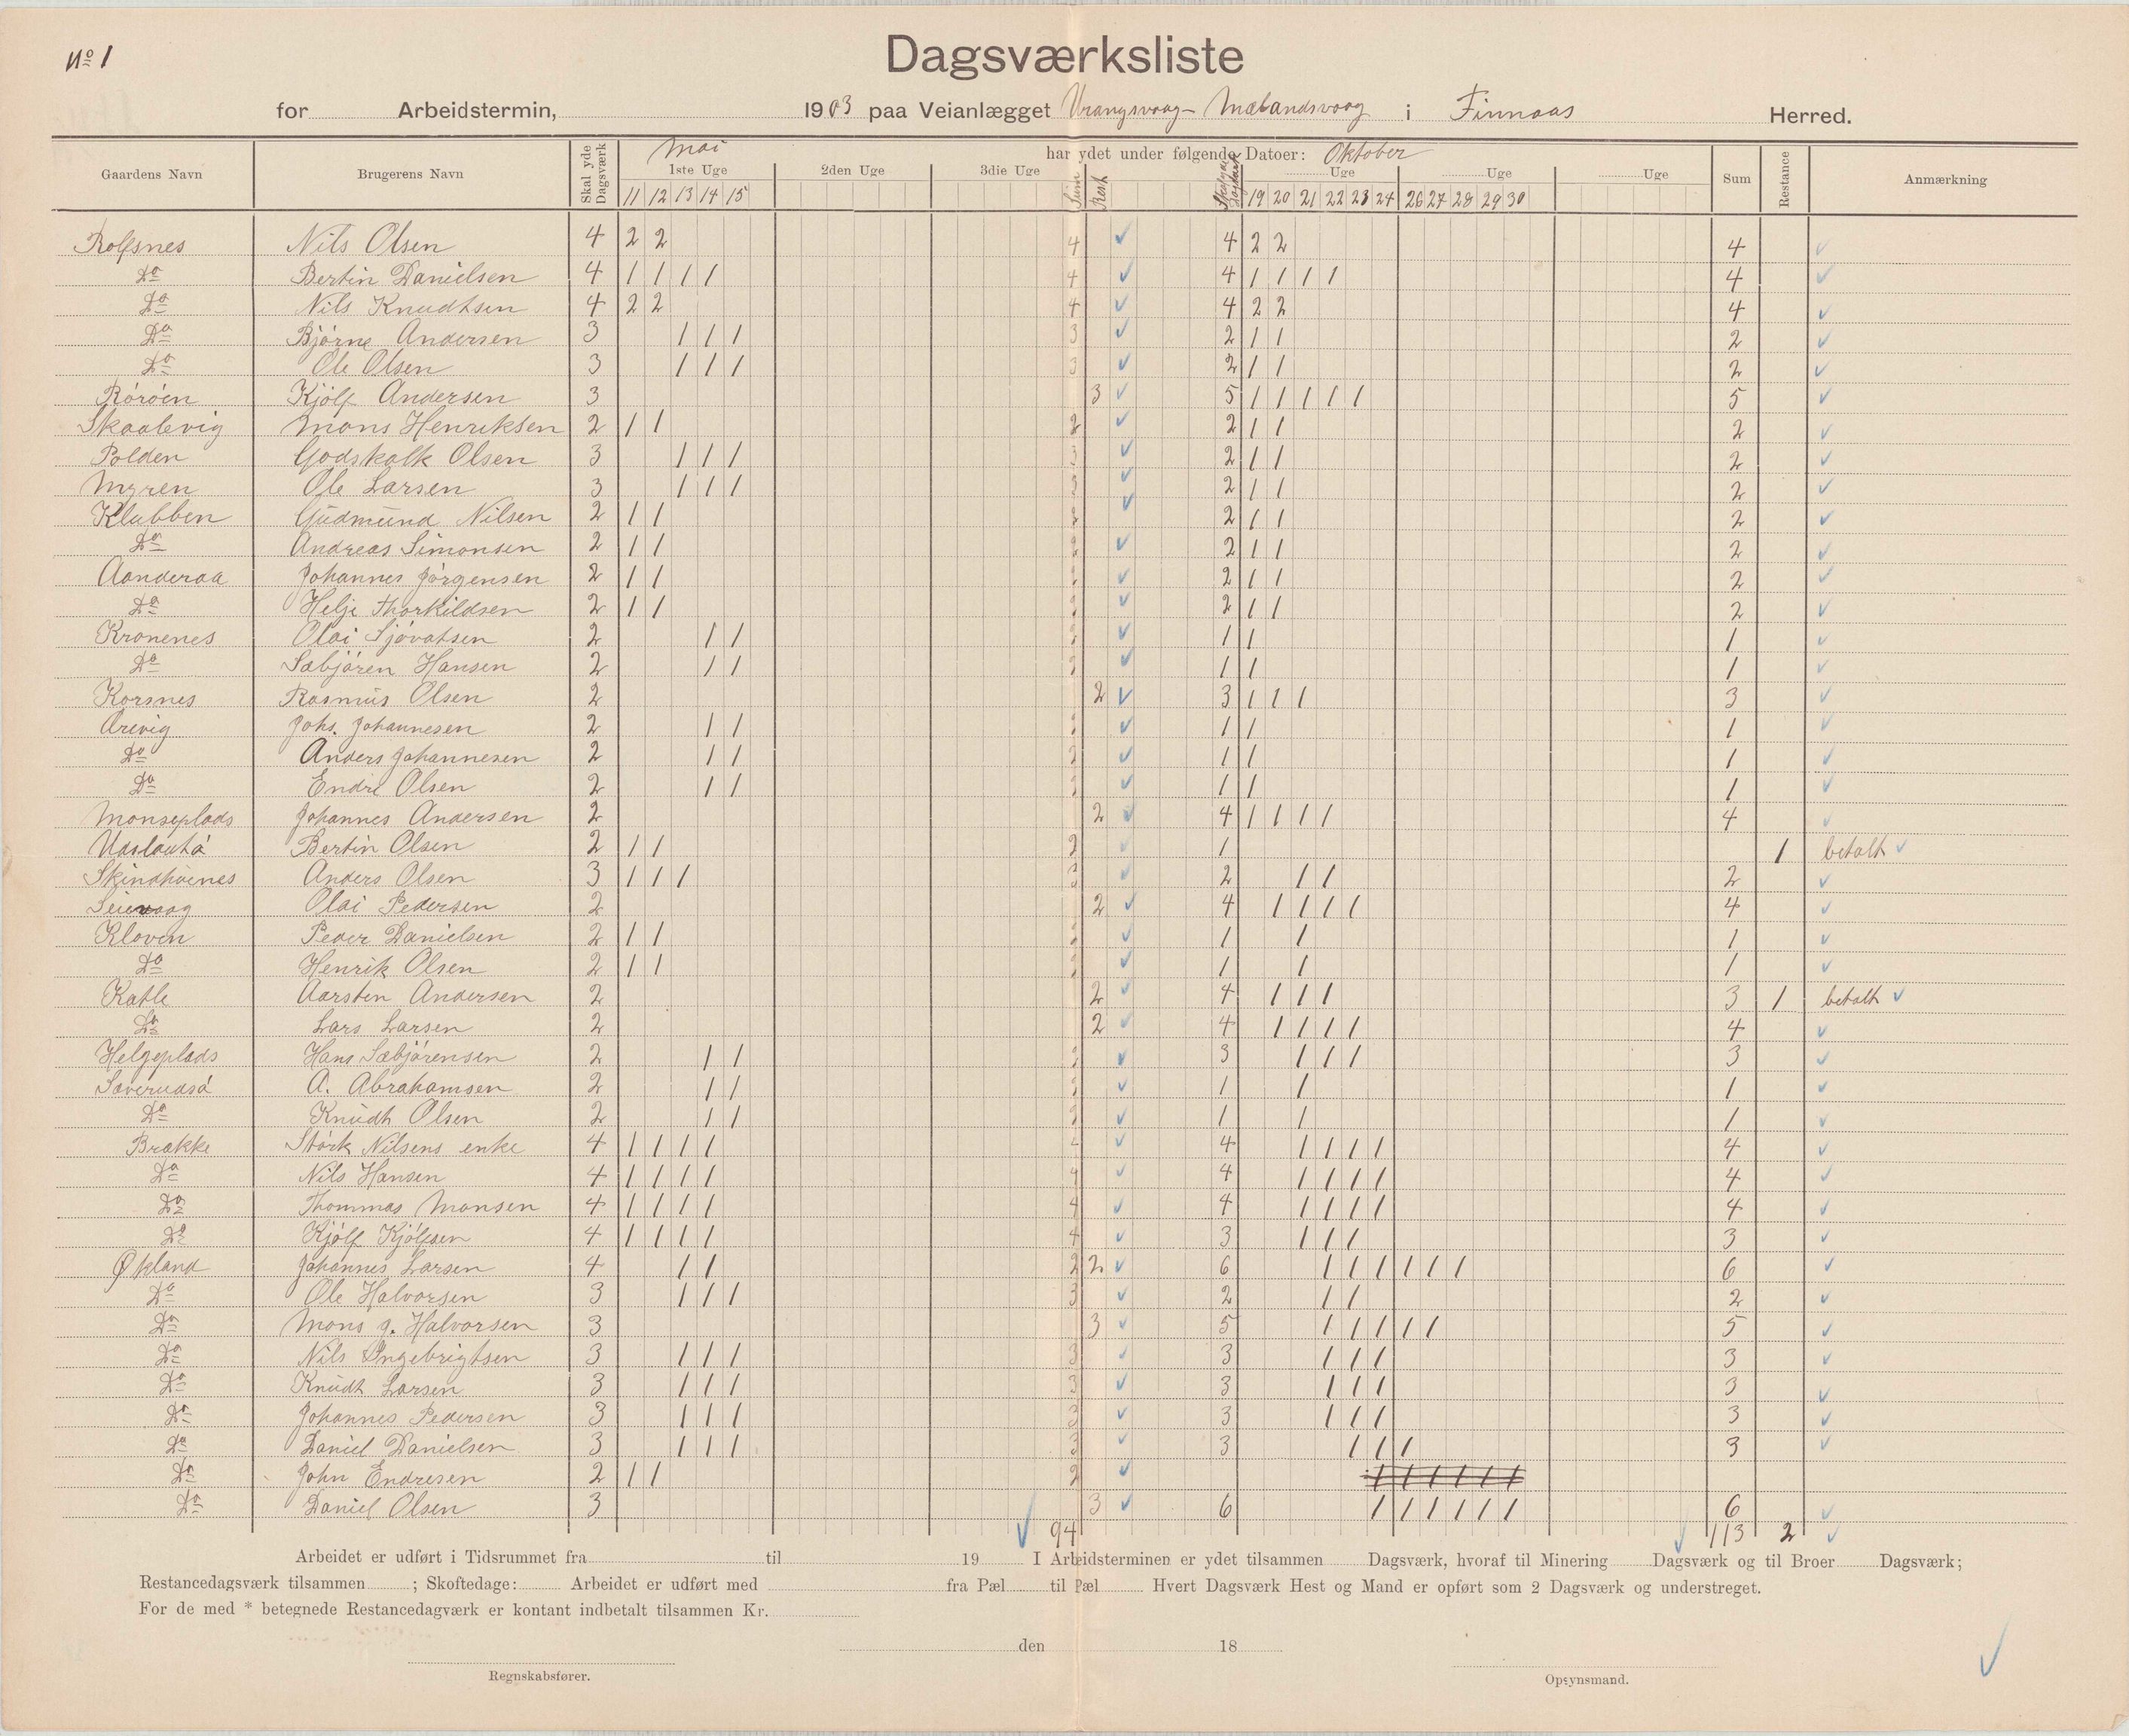 No 1
Dagsværksliste
for Arbeidstermin, 1903 paa Veianlægget Vrangsvaag - Mælandsvaag i Finnaas Herred.
Gaardens Navn Brugerens Navn Skal yde Dagsværk Mai har ydet under følgende Datoer: Oktober Sum Restance Anmærkning
1ste Uge 2den Uge 3die Uge Sum Rest Uge Uge Uge
11 12 13 14 15 19 20 21 22 23 24 26 27 28 29 30
Rolfsnes Nils Olsen 4 2 2 4 4 2 2 4
Do Bertin Danielsen 4 1 1 1 1 4 4 1 1 1 1 4
Do Nils Knudtsen 4 2 2 4 4 2 2 4
Do Bjørne Andersen 3 1 1 1 3 2 1 1 2
Do Ole Olsen 3 1 1 1 3 2 1 1 2
Rórøen Kjölf Andersen 3 3 5 1 1 1 1 1 5
Skaalevig Mons Henriksen 2 1 1 2 2 1 1 2
Polden Godskalk Olsen 3 1 1 1 3 2 1 1 2
Myren Ole Larsen 3 1 1 1 3 2 1 1 2
Klubben Gudmund Nilsen 2 1 1 2 2 1 1 2
Do Andreas Simonsen 2 1 1 2 2 1 1 2
Aanderaa Johannes Jørgensen 2 1 1 2 2 1 1 2
Do Helje Thorkildsen 2 1 1 2 2 1 1 2
Kronenes Olai Sjóvatsen 2 1 1 2 1 1 1
Do Sæbjören Hansen 2 1 1 2 1 1 1
Korsnes Rasmus Olsen 2 2 3 1 1 1 3
Arevig Johs. Johannesen 2 1 1 2 1 1 1
Do Anders Johannesen 2 1 1 2 1 1 1
Do Endre Olsen 2 1 1 2 1 1 1
Monseplads Johannes Andersen 2 2 4 1 1 1 1 4
Bertin Olsen 2 1 1 2 1 1 betalt
Anders Olsen 3 1 1 1 3 2 1 1 2
Seievaag Olai Pedersen 2 2 4 1 1 1 1 4
Kloven Peder Danielsen 2 1 1 2 1 1 1
Do Henrik Olsen 2 1 1 2 1 1 1
Katle Aarsten Andersen 2 2 4 1 1 1 3 1 betalt
Do Lars Larsen 2 2 4 1 1 1 1 4
Helgeplads Hans Sæbjörensen 2 1 1 2 3 1 1 1 3
A. Abrahamsen 2 1 1 2 1 1 1
Do Knudt Olsen 2 1 1 2 1 1 1
Brække Störk Nilsens enke 4 1 1 1 1 4 4 1 1 1 1 4
Do Nils Hansen 4 1 1 1 1 4 4 1 1 1 1 4
Do Thommas Monsen 4 1 1 1 1 4 4 1 1 1 1 4
Do Kjölf Kjölfsen 4 1 1 1 1 4 3 1 1 1 3
Økland Johannes Larsen 4 1 1 2 2 6 1 1 1 1 1 1 6
Do Ole Halvorsen 3 1 1 1 3 2 1 1 2
Do Mons g. Halvorsen 3 3 5 1 1 1 1 1 5
Do Nils Ingebrigtsen 3 1 1 1 3 3 1 1 1 3
Do Knudt Larsen 3 1 1 1 3 3 1 1 1 3
Do Johannes Pedersen 3 1 1 1 3 3 1 1 1 3
Do Daniel Danielsen 3 1 1 1 3 3 1 1 1 3
Do John Endresen 2 1 1 2 1 1 1 1 1 1
Do Daniel Olsen 3 3 6 1 1 1 1 1 1 6
94 113 2
Arbeidet er udført i Tidsrummet fra til 19 I Arbeidsterminen er ydet tilsammen Dagsværk, hvoraf til Minering Dagsværk og til Broer Dagsværk;
Restancedagsværk tilsammen ; Skoftedage: Arbeidet er udført med fra Pæl til Pæl Hvert Dagsværk Hest og Mand er opført som 2 Dagsværk og understreget.
For de med * betegnede Restancedagværk er kontant indbetalt tilsammen Kr.
den 18
Regnskabsfører. Opsynsmand.